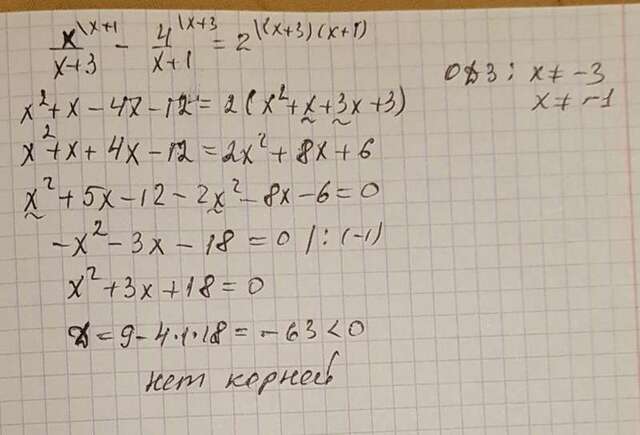 x\x+1/x+3 - 4\x+3/x+1 = 2\(x+3)(x+1)
ОДЗ: x ≠ -3
x ≠ -1
x²+x-4x-12 = 2(x²+x+3x+3)
x²+x+4x-12 = 2x²+8x+6
x²+5x-12-2x²-8x-6=0
-x²-3x-18=0 |:(-1)
x²+3x+18=0
Д=9-4·1·18=-63<0
нет корней